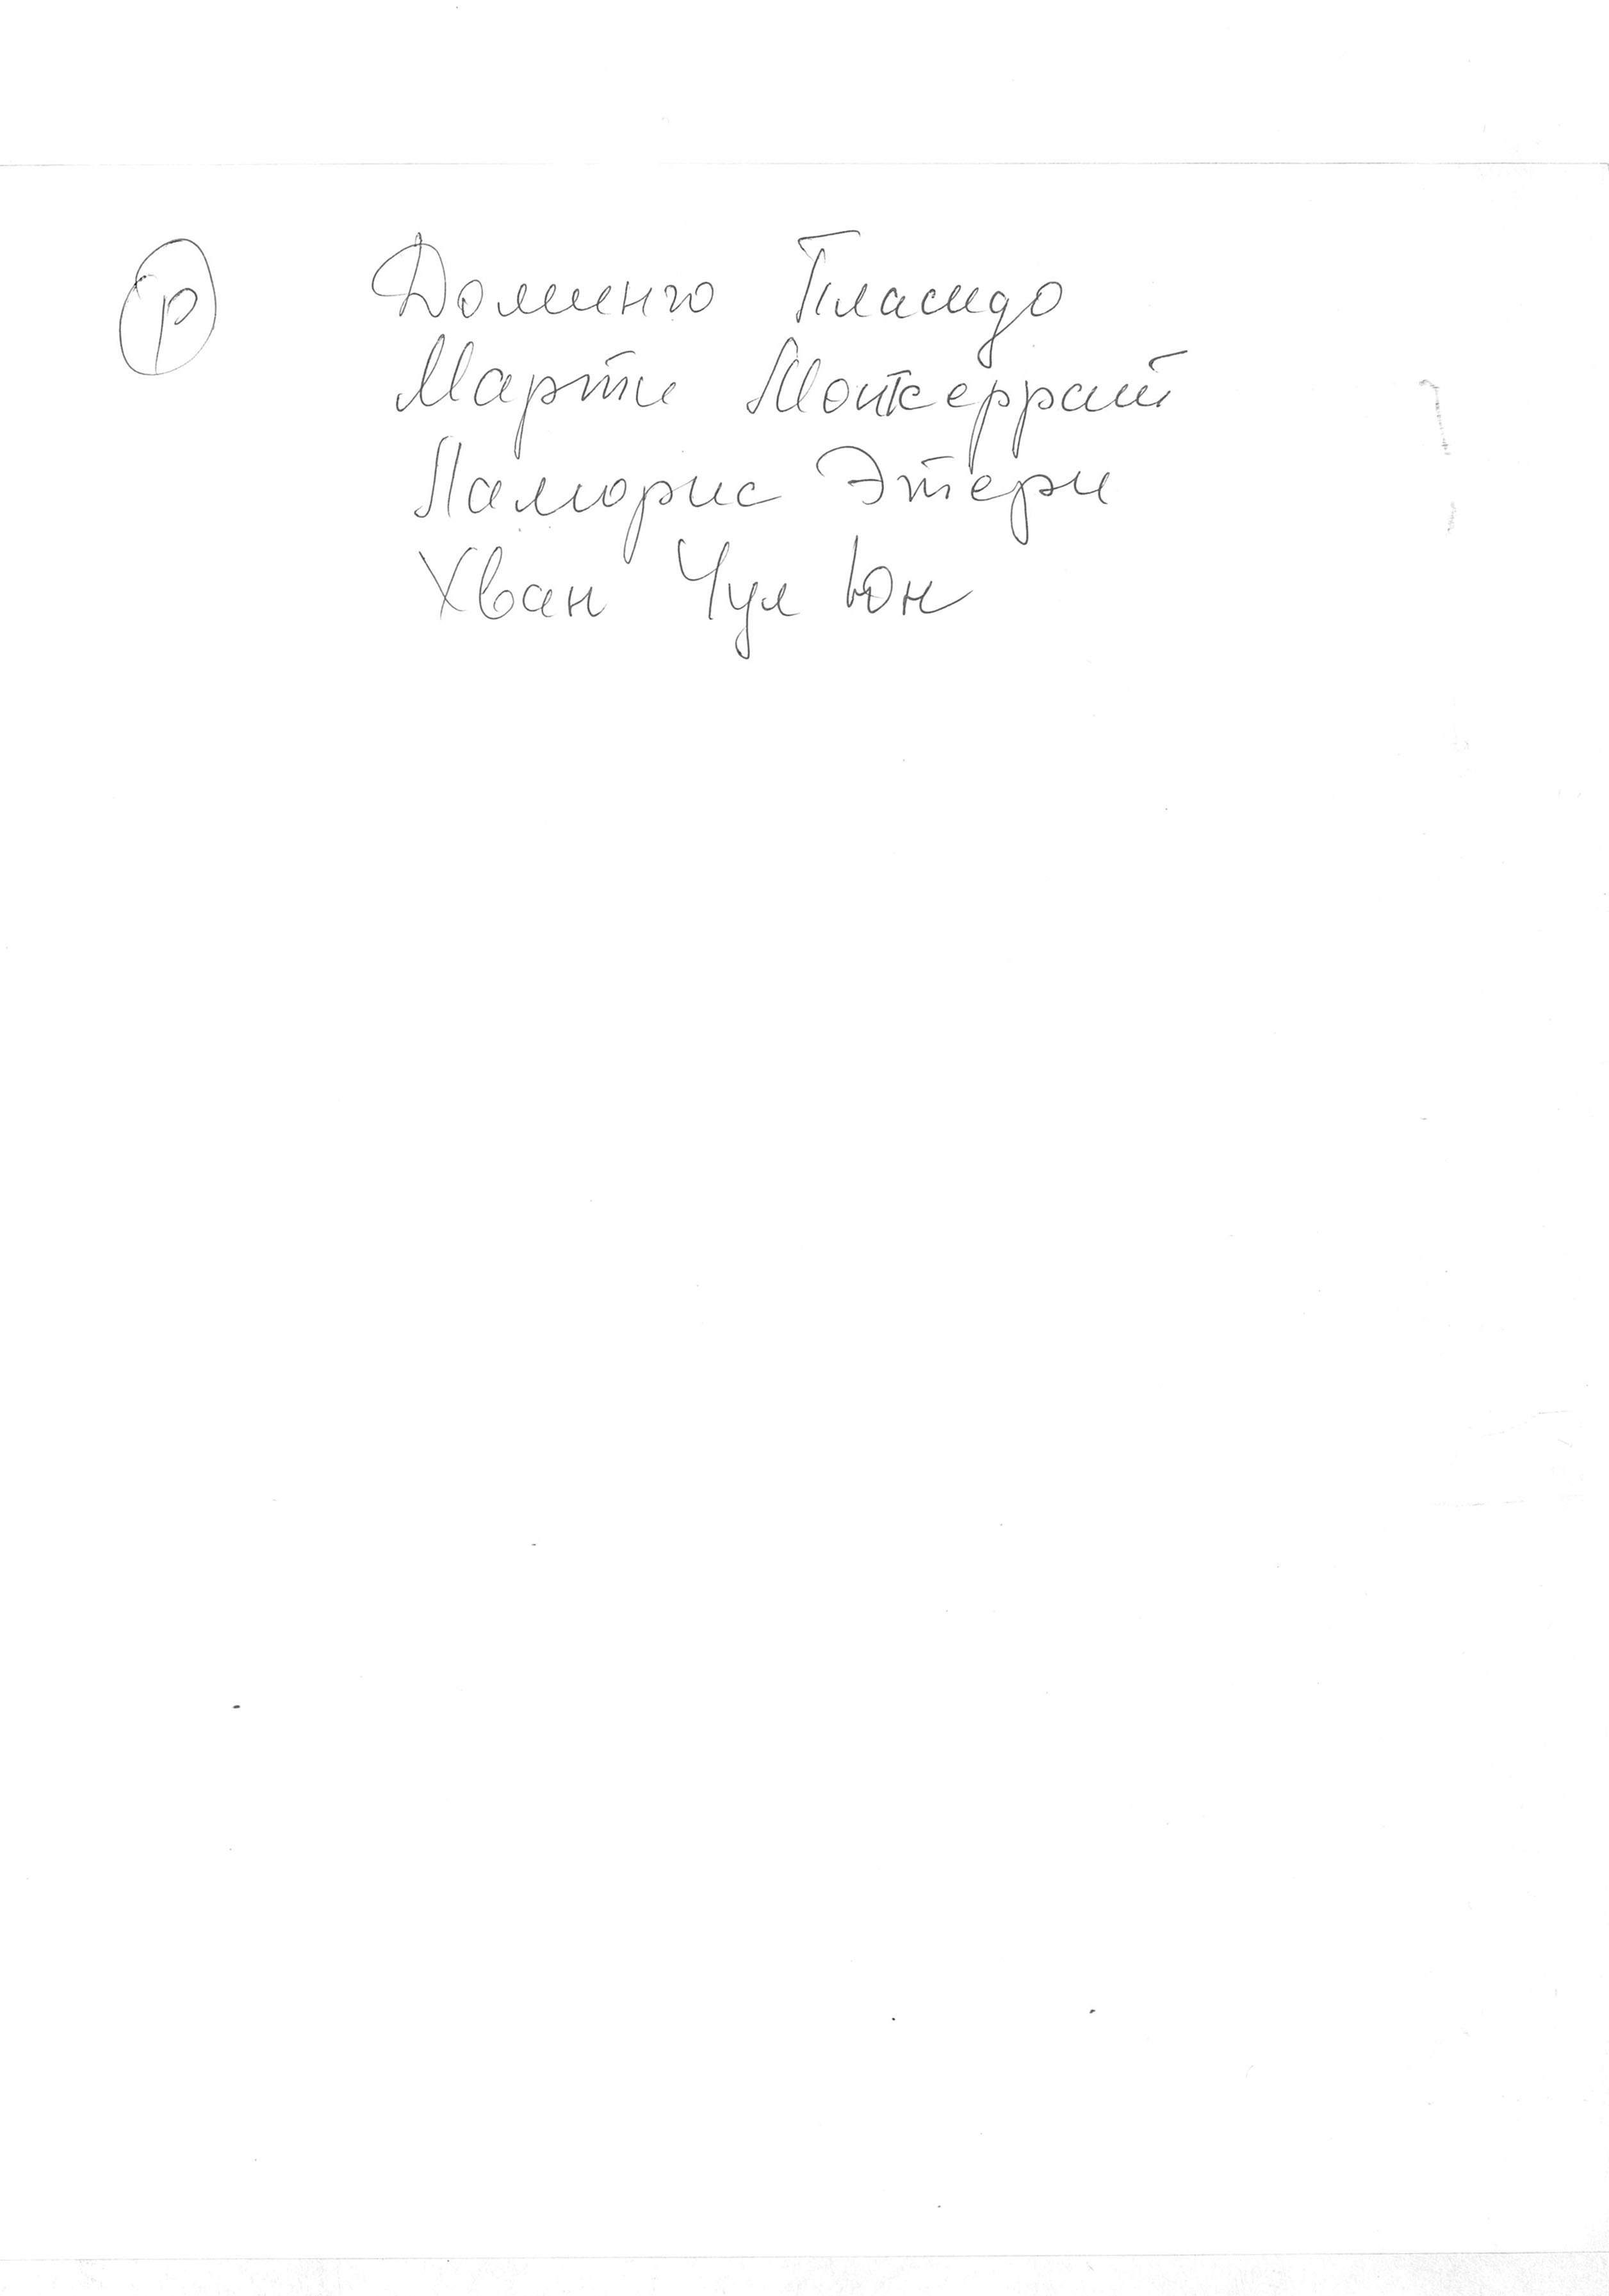 р Доминго Пласидо
Марти Монтсеррат
Ламорис Этери
Хван Чул Юн